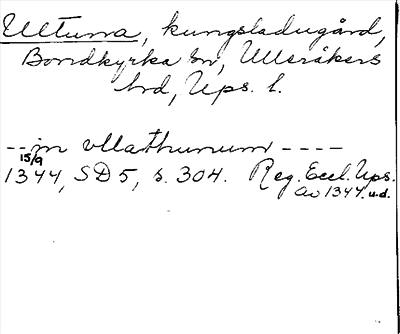 Ultuna, kungsladugård,
Bondkyrka sn, Ulleråkers
hd, Ups. l.
--in vllathunum ----
15/9
1344, SD 5, s. 304. Reg. Eccl. Ups.
av 1344. u.d.